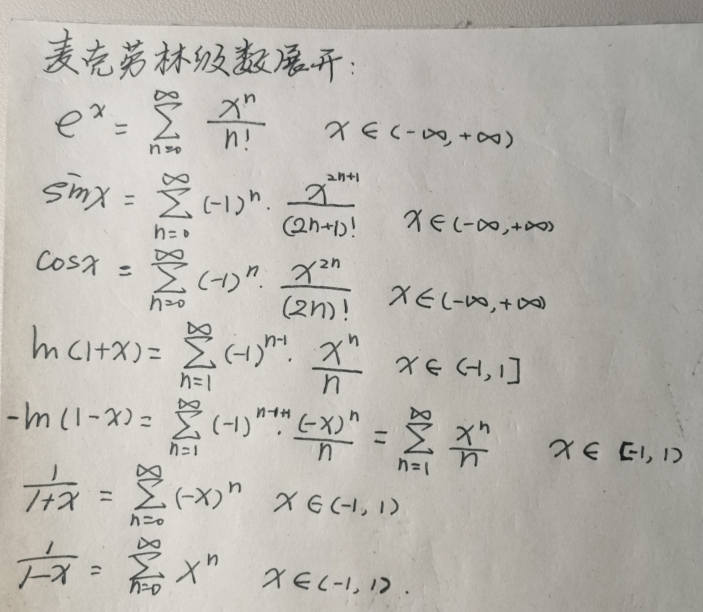 麦克劳林级数展开:
e^x = ∑_{n=0}^{∞} x^n/n! x ∈ (-∞, +∞)
sinx = ∑_{n=0}^{∞} (-1)^n · x^{2n+1}/(2n+1)! x ∈ (-∞, +∞)
cosx = ∑_{n=0}^{∞} (-1)^n · x^{2n}/(2n)! x ∈ (-∞, +∞)
ln(1+x) = ∑_{n=1}^{∞} (-1)^{n-1} · x^n/n x ∈ (-1, 1]
-ln(1-x) = ∑_{n=1}^{∞} (-1)^{n-1+1} · (-x)^n/n = ∑_{n=1}^{∞} x^n/n x ∈ [-1, 1)
1/(1+x) = ∑_{n=0}^{∞} (-x)^n x ∈ (-1, 1)
1/(1-x) = ∑_{n=0}^{∞} x^n x ∈ (-1, 1).